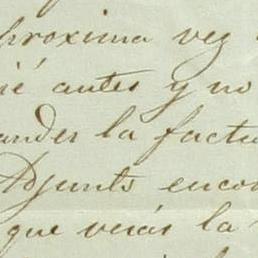 proxima vez
ié antes y no
andar la factu
Adjunts encon
que verás la